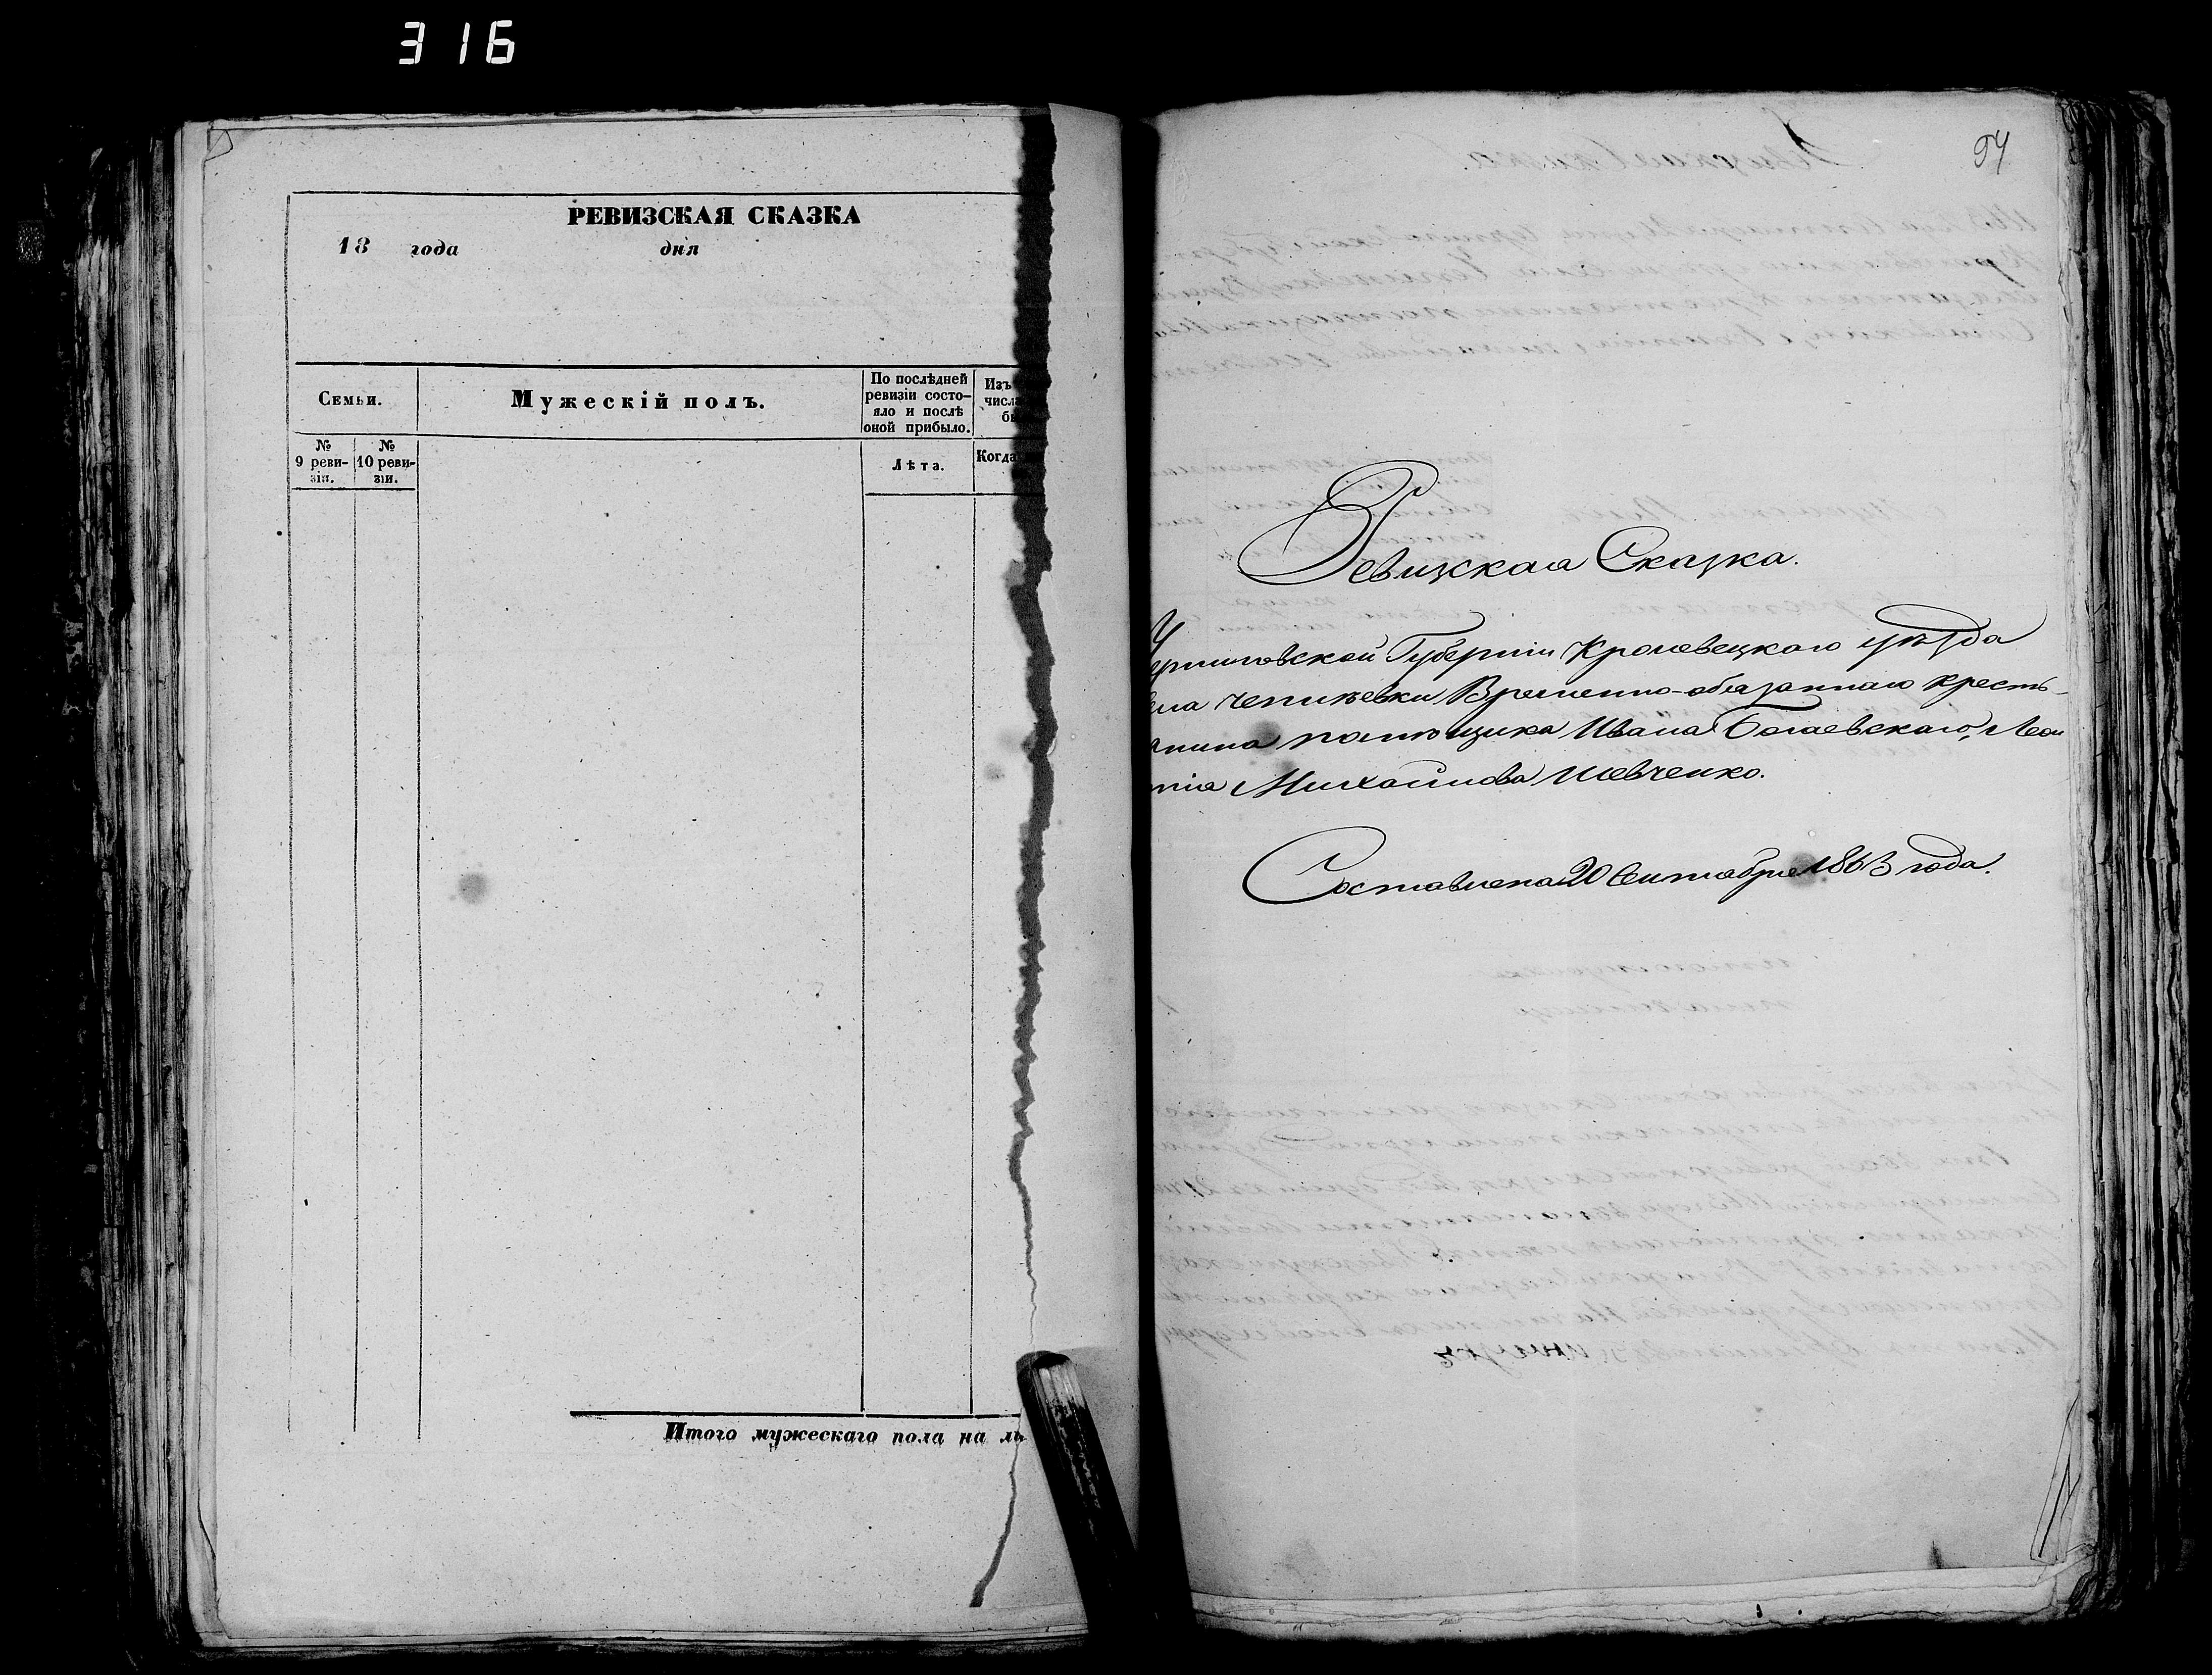 316
РЕВИЗСКАЯ СКАЗКА
18 года дня
Семьи.
Мужескій полъ.
По послѣдней
ревизіи состо-
яло и послѣ
оной прибыло.
Изъ
числа
№
9 реви-
зіи.
№
10 реви-
зіи.
Лѣта.
Когда
Итого мужескаго пола на ли
94
Ревизская Сказка.
Черниговской Губерніи Кролевецкаго уѣзда
села Чепліевки Временно-обязаннаго кресть-
янина помѣщика Ивана Богаевскаго, Леон
тія Михайлова Шевченко.
Составлена 20 Сентября 1863 года.